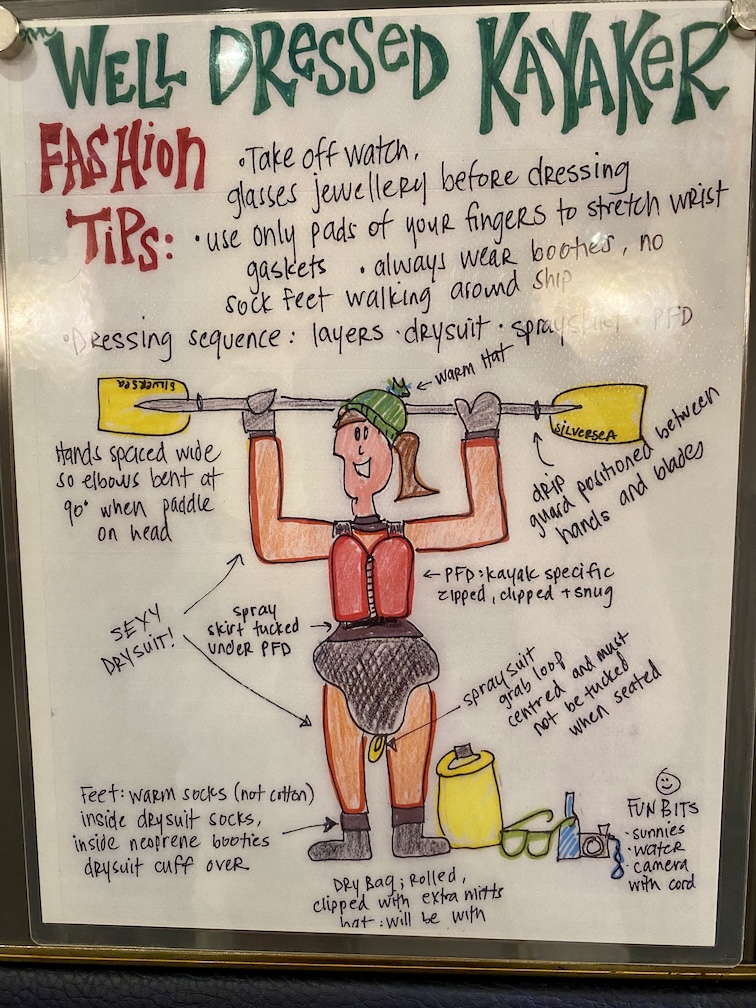 WELL DRESSED KAYAKER
FASHION
TIPS:
•Take off watch,
glasses jewellery before dressing
•use only pads of your fingers to stretch wrist
gaskets •always wear booties, no
sock feet walking around ship
•Dressing sequence: layers •drysuit •sprayskirt •PFD
← WARM HAT
SILVERSEA
SILVERSEA
Hands spaced wide
so elbows bent at
90° when paddle
on head
drip
guard positioned between
hands and blades
← PFD: kayak specific
zipped, clipped + snug
SEXY
DRYSUIT!
spray
skirt tucked
under PFD
spraysuit
grab loop
centred and must
not be tucked
when seated
Feet: warm socks (not cotton)
inside drysuit socks,
inside neoprene booties
drysuit cuff over
FUN BITS
•sunnies
•water
•camera
with cord
Dry Bag; Rolled,
clipped with extra mitts
hat: will be with